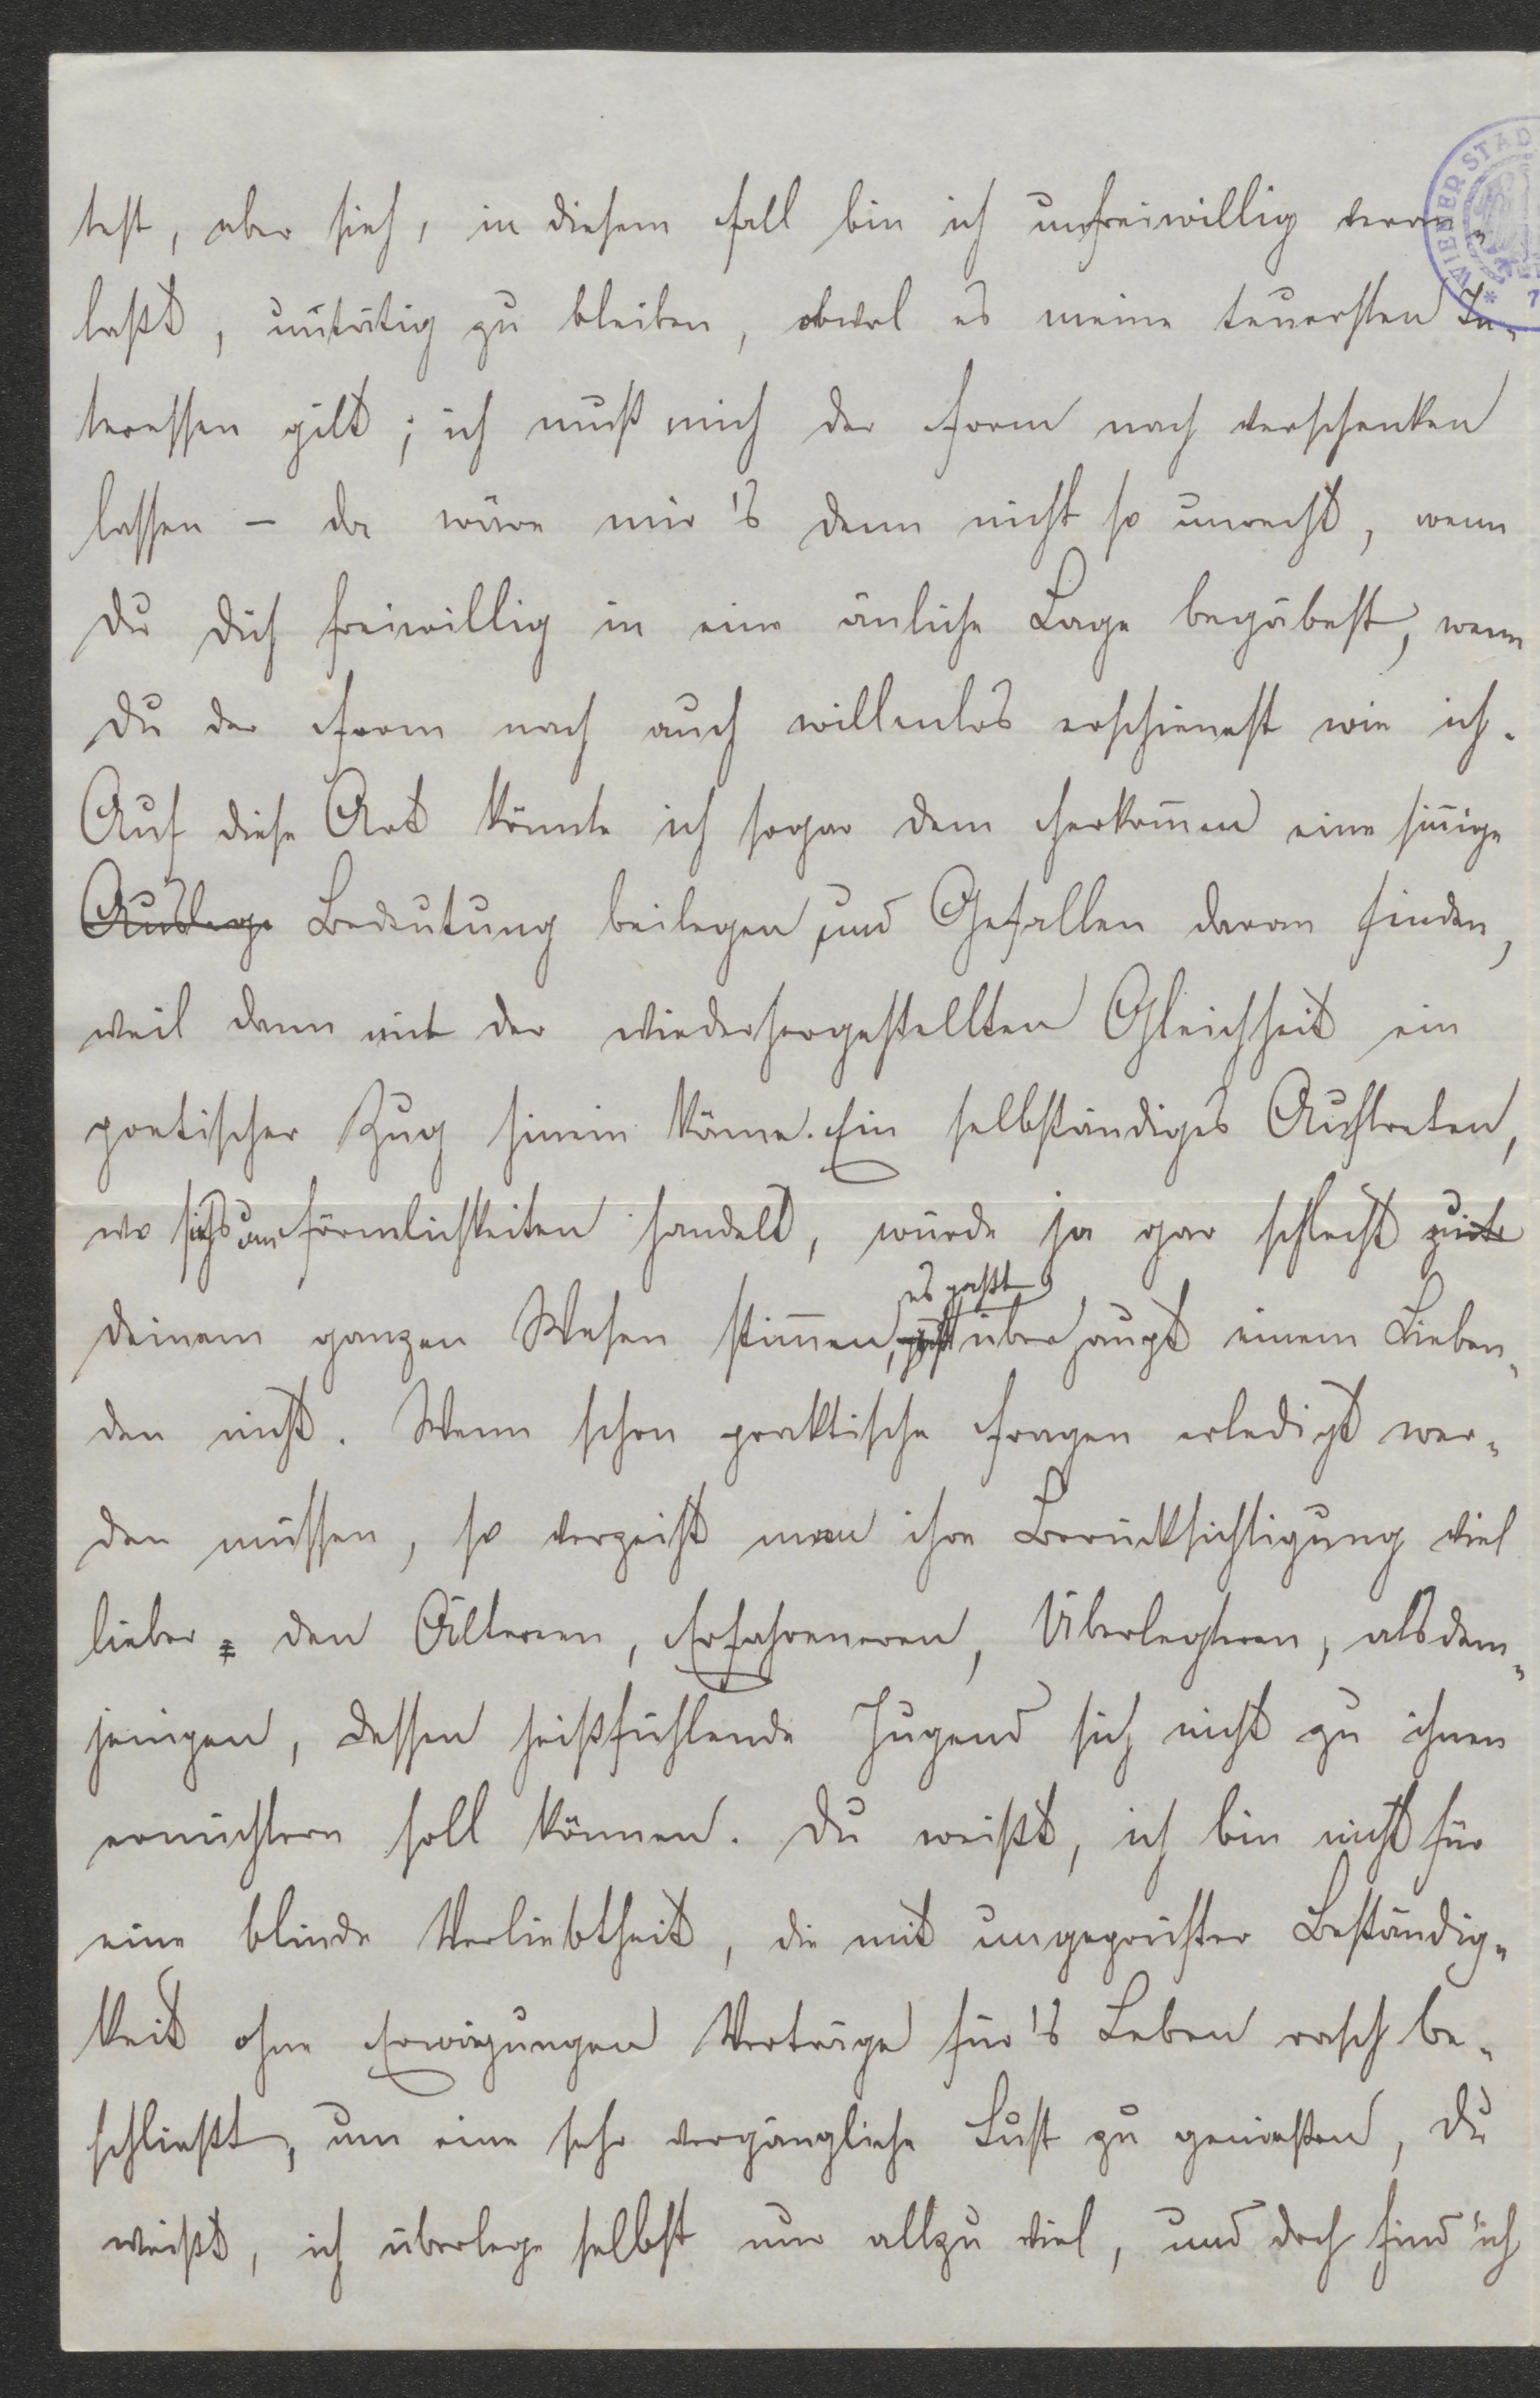 test, aber sieh, in diesem Fall bin ich unfreiwillig veran-
laßt, untätig zu bleiben, obwol es meine teuersten In-
teressen gilt; ich muß mich der Form nach verschenken
lassen – da wäre mir's denn nicht so unrecht, wenn
Du Dich freiwillig in eine änliche Lage begäbest, wenn
Du der Form nach auch willenlos erschienest wie ich.
Auf diese Art könnte ich sogar dem Herkom̄en eine sin̄ige
Auslage Bedeutung beilegen und Gefallen daran finden,
weil dann mit der wiederhergestellten Gleichheit ein
poetischer Zug hinein käme. Ein selbständiges Auftreten,
wo sichs um Förmlichkeiten handelt, würde ja gar schlecht zu
deinem ganzen Wesen stim̄en, es paßt überhaupt einem Lieben-
den nicht. Wenn schon praktische Fragen erledigt wer-
den müssen, so verzeiht man ihre Berücksichtigung viel
lieber den Älteren, Erfahreneren, Überlegteren, als dem-
jenigen, dessen heißfühlende Jugend sich nicht zu ihnen
ernüchtern soll können. Du weißt, ich bin nicht für
eine blinde Verliebtheit, die mit ungeprüfter Beständig-
keit ohne Erwägungen Verträge für's Leben rasch be-
schließt, um eine sehr vergängliche Lust zu genießen, Du
weißt, ich überlege selbst nur allzu viel, und doch find' ich
WIENER STAD